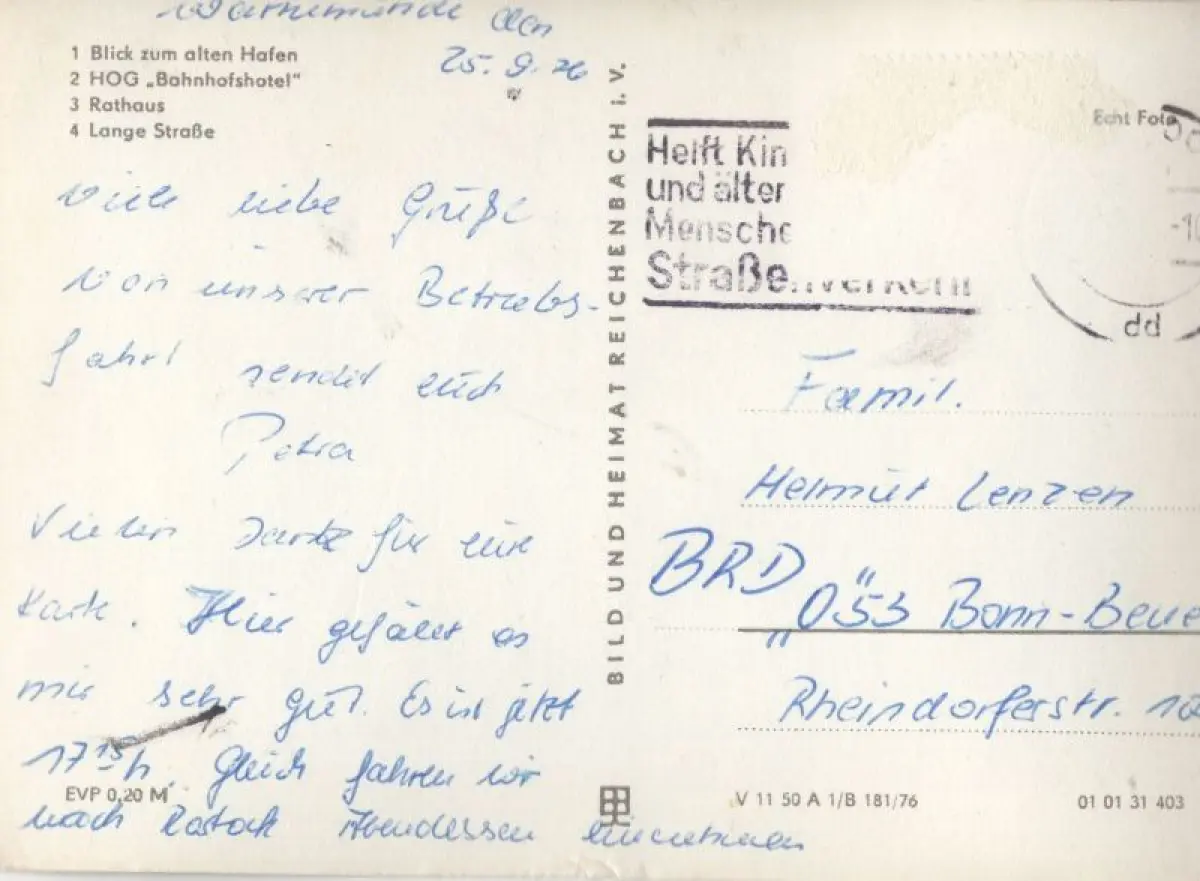 Warnemünde den
25.9.76
1 Blick zum alten Hafen
2 HOG „Bahnhofshotel"
3 Rathaus
4 Lange Straße
Viele liebe Grüße
von unserer Betriebs-
fahrt sendet euch
Petra
Vielen Dank für eure
Karte. Hier gefällt es
mir sehr gut. Es ist jetzt
17 15 h. Gleich fahren wir
EVP 0,20 M
nach Rostock Abendessen einnehmen
BILD UND HEIMAT REICHENBACH i. V.
Echt Foto
Helft Kin
und älter
Mensche
Straßenverkehr
-10
dd
Famil.
Helmut Lenzen
BRD „053" Bonn-Beue
Rheindorferstr.
V 11 50 A 1/B 181/76
01 01 31 403